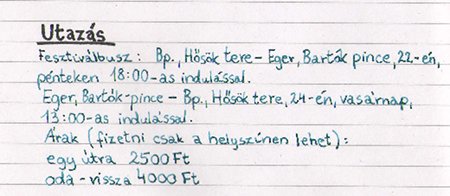 Utazás
Fesztiválbusz: Bp., Hősök tere - Eger, Bartók pince, 22-én,
pénteken 18:00-as indulással.
Eger, Bartók-pince - Bp., Hősök tere, 24-én, vasárnap,
13:00-as indulással.
Árak (fizetni csak a helyszínen lehet):
egy útra 2500 Ft
oda-vissza 4000 Ft